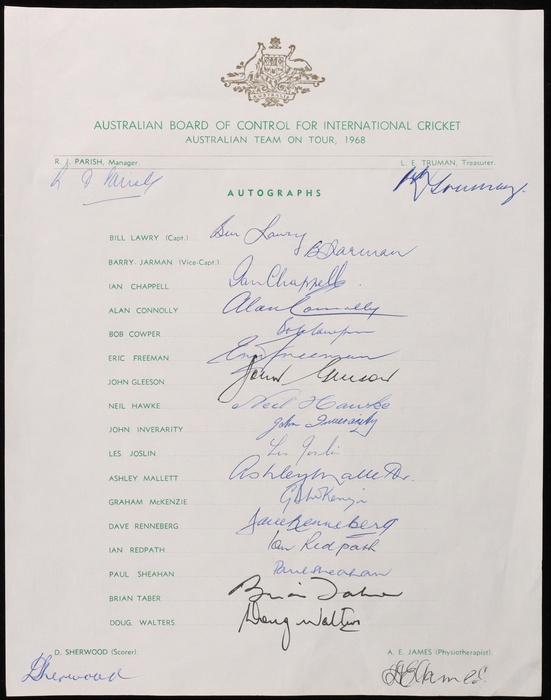 AUSTRALIA
AUSTRALIAN BOARD OF CONTROL FOR INTERNATIONAL CRICKET
AUSTRALIAN TEAM ON TOUR, 1968
R. J. PARISH, Manager. L. E. TRUMAN, Treasurer.
R J Parish
AUTOGRAPHS
BILL LAWRY (Capt.) Bill Lawry
BARRY JARMAN (Vice-Capt.) B Jarman
IAN CHAPPELL Ian Chappell
ALAN CONNOLLY Alan Connolly
BOB COWPER Bob Cowper
ERIC FREEMAN Eric Freeman
JOHN GLEESON John Gleeson
NEIL HAWKE Neil Hawke
JOHN INVERARITY John Inverarity
LES JOSLIN Les Joslin
ASHLEY MALLETT Ashley Mallett
GRAHAM McKENZIE G D McKenzie
DAVE RENNEBERG Dave Renneberg
IAN REDPATH Ian Redpath
PAUL SHEAHAN Paul Sheahan
BRIAN TABER Brian Taber
DOUG. WALTERS Doug Walters
D. SHERWOOD (Scorer). A. E. JAMES (Physiotherapist).
D Sherwood A E James